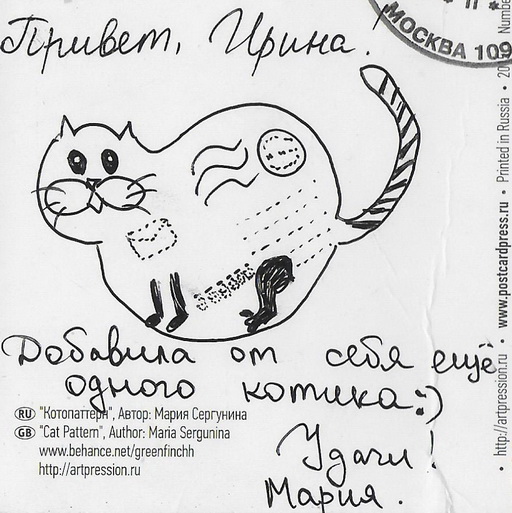 Привет, Ирина!
МОСКВА 109
Добавила от себя ещё
одного котика:)
RU "Котопаттерн", Автор: Мария Сергунина
GB "Cat Pattern", Author: Maria Sergunina
www.behance.net/greenfinchh
http://artpression.ru
Удачи!
Мария.
http://artpression.ru • www.postcardpress.ru • Printed in Russia • 20